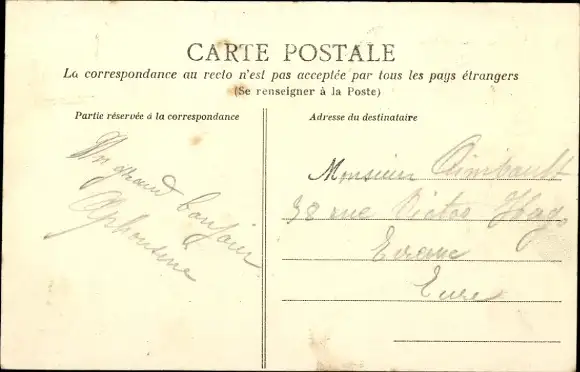 CARTE POSTALE
La correspondance au recto n'est pas acceptée par tous les pays étrangers
(Se renseigner à la Poste)
Partie réservée à la correspondance
Un grand bonjour
Alphonsine
Adresse du destinataire
Monsieur
38 rue Victor Hugo
Eure